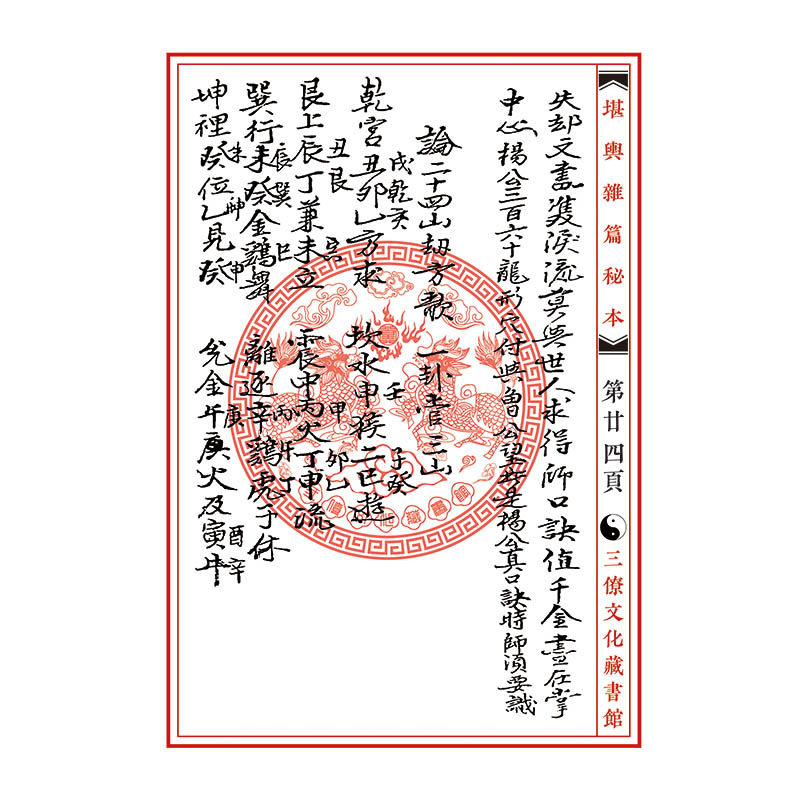 《堪輿雜篇秘本》 第廿四頁 三僚文化藏書館
失却文書雙淚流莫與世人求得師口訣值千金盡在掌
中心楊公三百六十龍形穴付與曾公是楊公真口訣時師須要識
論二十四山劫方歌 一卦管三山
戌乾亥 壬子癸
乾宮丑卯乙方求 坎水申猴二巳遊
丑艮寅 甲卯乙
艮上辰丁兼未立 震中丙火丁申流
辰巽巳 丙午丁
巽行未癸金鷄舞 離逐辛鷄虎于休
未坤申 庚酉辛
坤裡癸位乙見癸 兌金午庚火及寅牛